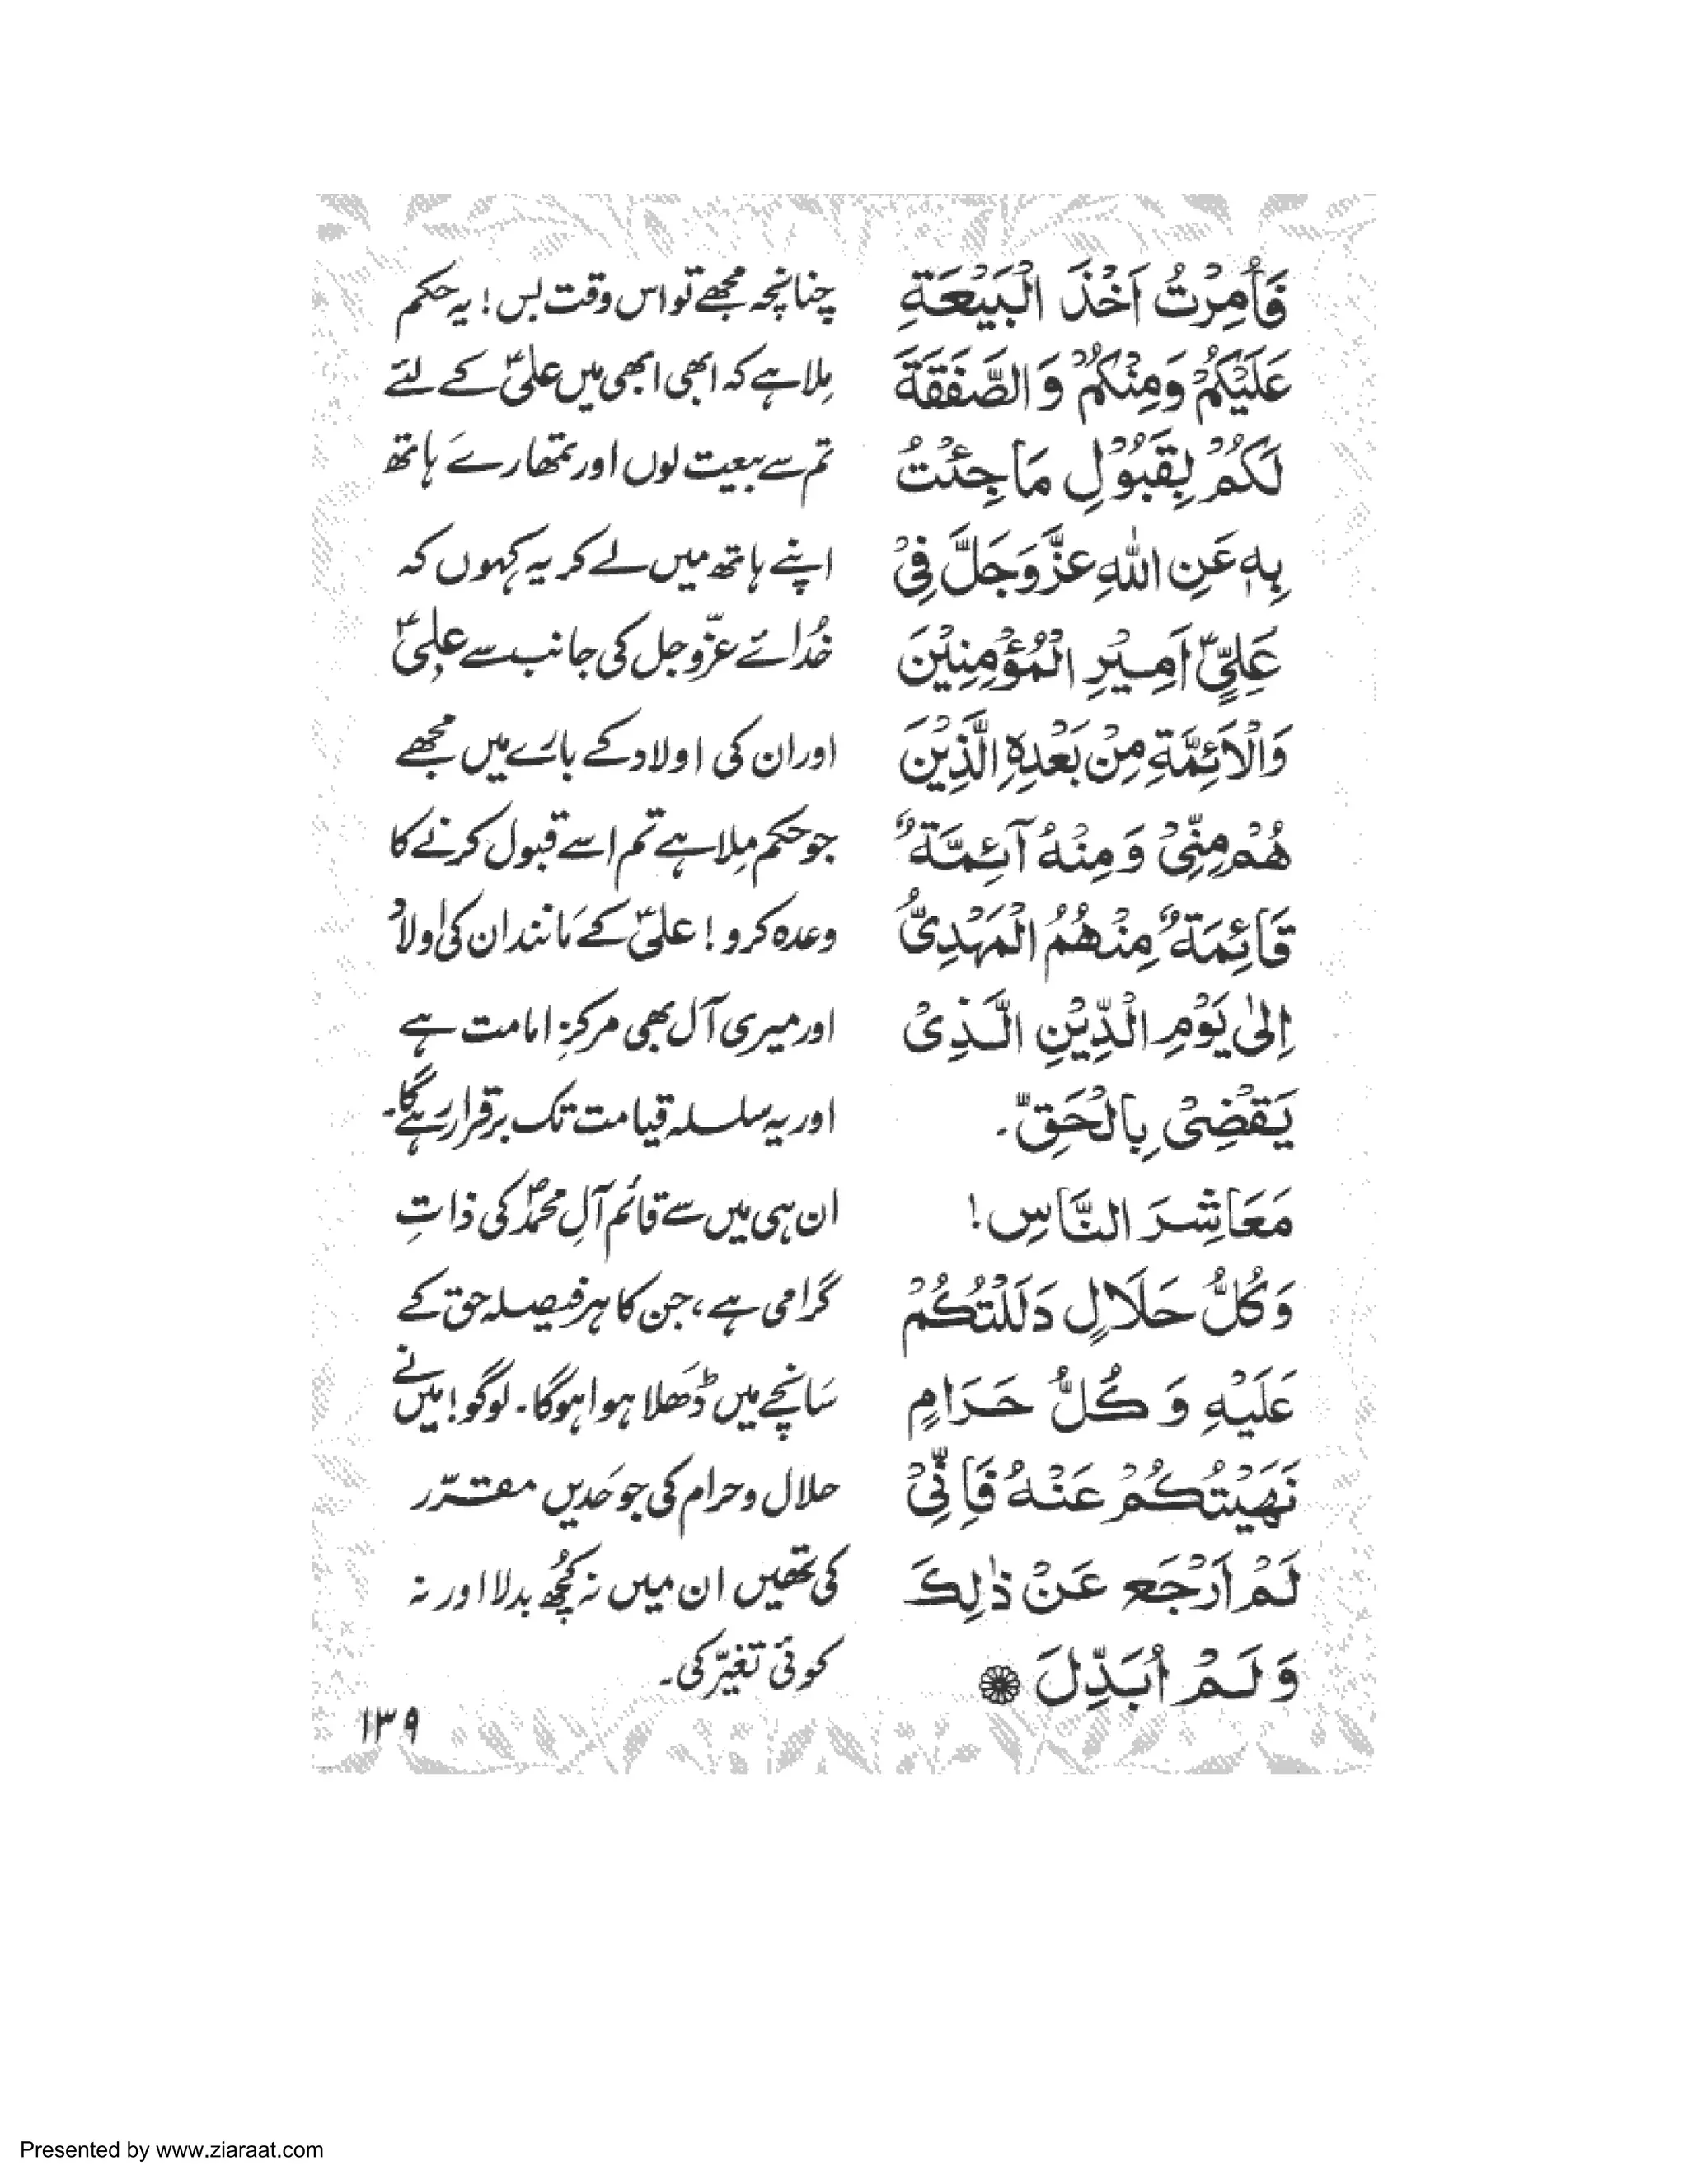 فَأُمِرْتُ اَخْذَ الْبَيْعَةِ
عَلَيْكُمْ وَمِنْكُمْ وَالصَّفَقَةَ
لَكُمْ بِقَبُوْلِ مَاجِئْتُ
بِهٖ عَنِ اللهِ عَزَّوَجَلَّ فِيْ
عَلِيٍّ اَمِيْرِ الْمُؤْمِنِيْنَ
وَالْاَئِمَّةِ مِنْ بَعْدِهِ الَّذِيْنَ
هُمْ مِنِّيْ وَ مِنْهُ آئِمَّةٌ
قَائِمَةٌ مِنْهُمُ الْمَهْدِيُّ
اِلىٰ يَوْمِ الْدِّيْنِ الَّذِيْ
يَقْضِيْ بِالْحَقِّ۔
مَعَاشِرَ النَّاسِ!
وَكُلُّ حَلَالٍ دَلَلْتُكُمْ
عَلَيْهِ وَ كُلُّ حَرَامٍ
نَهَيْتُكُمْ عَنْهُ فَاِنِّيْ
لَمْ اَرْجَع عَنْ ذٰلِكَ
وَ لَمْ اُبَدِّلَ
چنانچہ مجھے تو اس وقت بس! یہ حکم
مِلا ہے کہ ابھی ابھی میں علیؑ کے لئے
تم سے بیعت لوں اور تمھارے ہاتھ
اپنے ہاتھ میں لے کر یہ کہوں کہ
خُدائے عزّوجل کی جانب سے علیؑ
اور ان کی اولاد کے بارے میں مجھے
جو حکم مِلا ہے تم اسے قبول کرنے کا
وعدہ کرو! علیؑ کے مانند ان کی اولاد
اور میری آل بھی مرکزِ امامت ہے
اور یہ سلسلہ قیامت تک برقرار رہے گا۔
ان ہی میں سے قائم آلِ محمدؐ کی ذاتِ
گرامی ہے، جن کا ہر فیصلہ حق کے
سَانچے میں ڈھلا ہوا ہوگا۔ لوگو! میں نے
حلال و حرام کی جو حَدیں مقرّر
کی تھیں ان میں نہ کچُھ بدلا اور نہ
کوئی تغیّر کی۔
۱۳۹
Presented by www.ziaraat.com